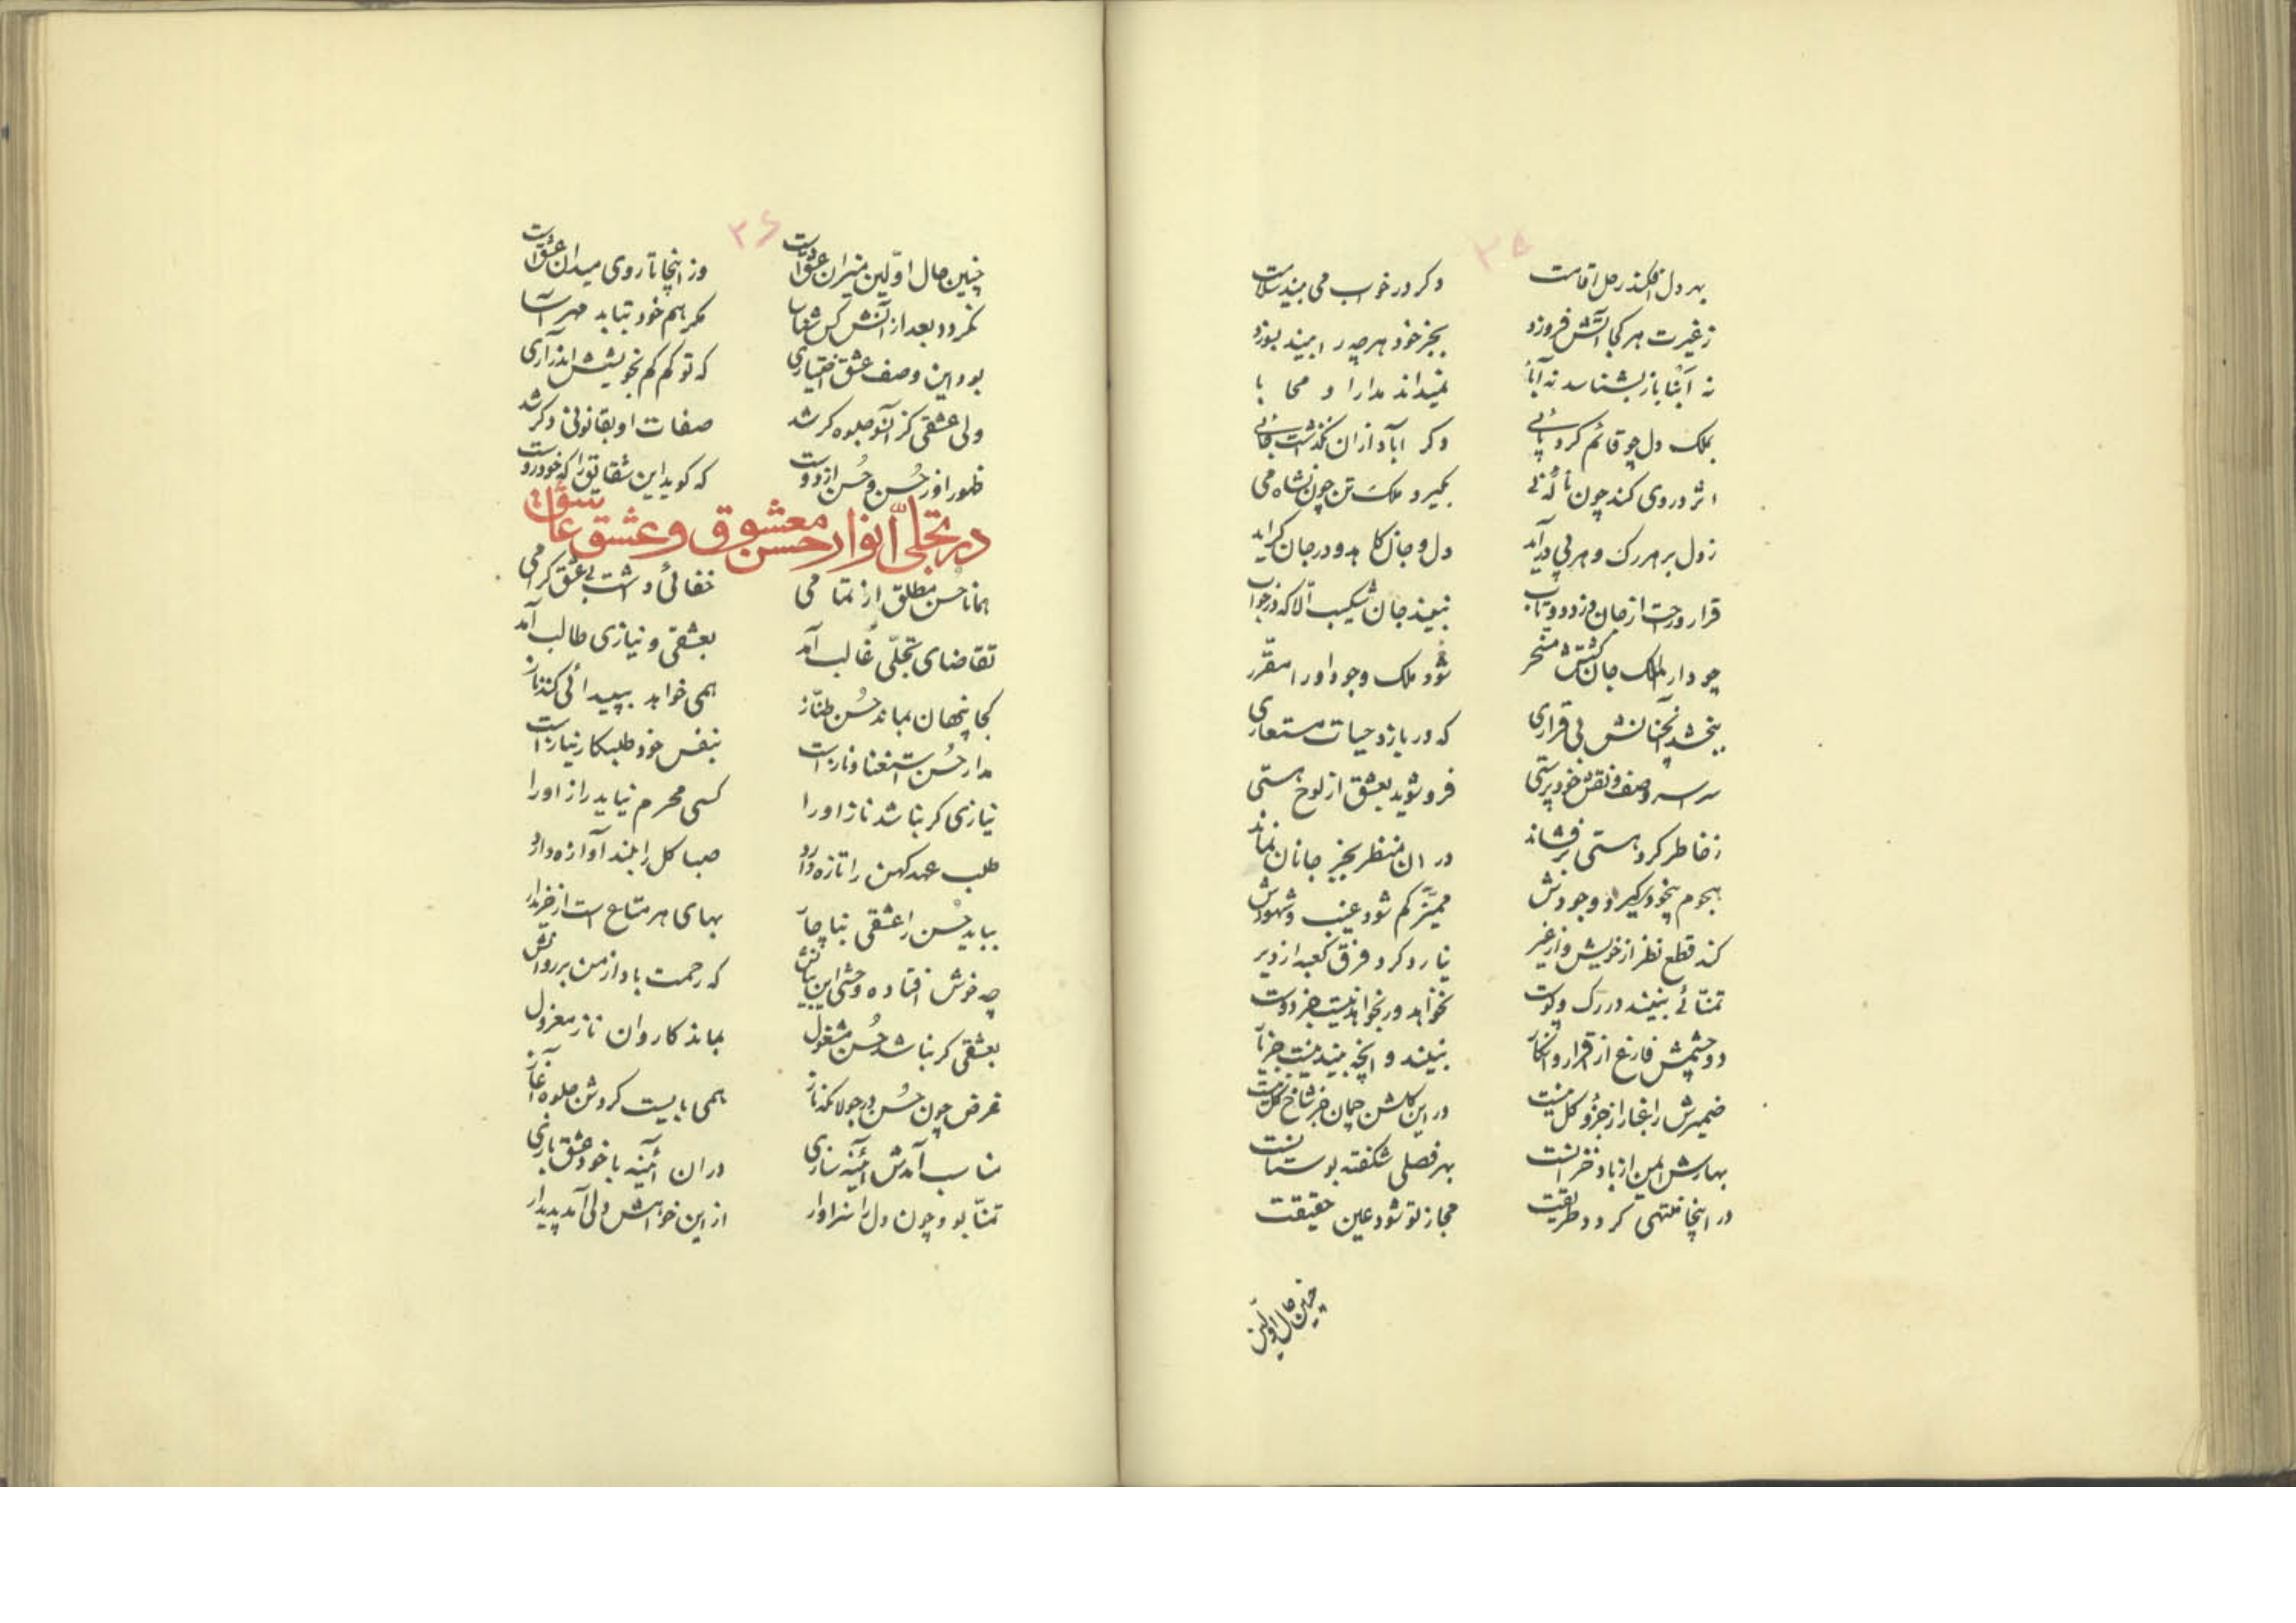 ۳۵
بهر دل افکند رحل اقامت دکر در خوب می بیند سلامت
ز غیرت هر کجا آتش فروزد بجز خود هر چه را بیند بسوزد
نه آبنا باز بشناسد نه آبا نمیداند مدارا و محابا
بملک دل چو قائم کرد پائی دکر آباد از ان نکذاشت جائی
اثر در وی کند چون نالهٔ نی بکیرد ملک تن چون نشاه می
ز دل بر هر رک و هر پی در آید دل و جان کاهد و در جان کراید
قرار و رحت از جان دزدد و تاب نبیند جان شکیب الا که در خواب
چو دار الملک جان کشتش مسخر شود ملک وجود او را مقرر
ببخشد آنچنانش بی قراری که در بازد حیات مستعاری
سراسر وصف و نقش خود پرستی فرو شوید بعشق از لوح هستی
ز خاطر کرد هستی بر فشاند در ان منظر بجز جانان نماند
هجوم بیخودی کیرد وجودش ممیز کم شود غیب و شهودش
کند قطع نظر از خویش و از غیر نیارد کرد فرق کعبه از دیر
تمنائے بنیند در رک و پوست نخواهد ور بخواهد نیست جز دوست
دو چشمش فارغ از اقرار و انکار نبیند و انچه بیند نیست جز یار
ضمیرش را غبار از جزو کل نیست در این کلشن چمان جز شاخ کل نیست
بهارش ایمن از باد خزانست بهر فصلی شکفته بوستانست
در اینجا منتهی کردد طریقت مجاز تو شود عین حقیقت
چنین حال اولین
۳۶
چنین حال اولین میزان عشق است وز اینجا تا روی میدان عشق است
نکردد بعد از آتش کس شناسا مکر هم خود بتابد مهر آسا
بود این وصف عشق اختیاری که تو کم کم بخویشش اندر آری
ولی عشقی کز آنسو جلوه کر شد صفات او بقانونی دکر شد
ظهور او ز حسن و حسن از دوست که کوید این شقایق را که خودروست
در تجلی انوار حسن معشوق و عشق عاشق
همانا حسن مطلق از تمامی خفائی داشت بی عشق کرامی
تقاضای تجلی غالب آمد بعشقی و نیازی طالب آمد
کجا پنهان بماند حسن طناز همی خواهد بپیدائی کند ناز
مدار حسن استغنا و ناز است بنفس خود طلبکار نیاز است
نیازی کر نباشد ناز او را کسی محرم نیاید راز او را
طلب عهد کهن را تازه دارد صبا کل را بلند آوازه دارد
بباید حسن را عشقی بناچار بهای هر متاع است از خریدار
چه خوش افتاده وحشی این بیانش که رحمت باد از من بر روانش
بعشقی کر نباشد حسن مشغول بماند کاروان ناز معزول
غرض چون حسن در جولا نکند ناز همی بایست کردش جلوه آغاز
مناسب آمدش آئینه سازی در ان آئینه با خود عشق بازی
تمنا بود چون دل را سزاوار از این خواهش ولی آمد پدیدار